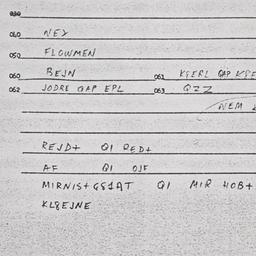 030
040 NEY
050 FLOWMEN
060 BEJN 061 KSERL QAP
062 JODRE QAP EPL 063 QZZ
NEM
REJD+ QI RED+
AF QI OJF
MIRNIS+GS1AT QI MIR HOB+
KL8EJNE